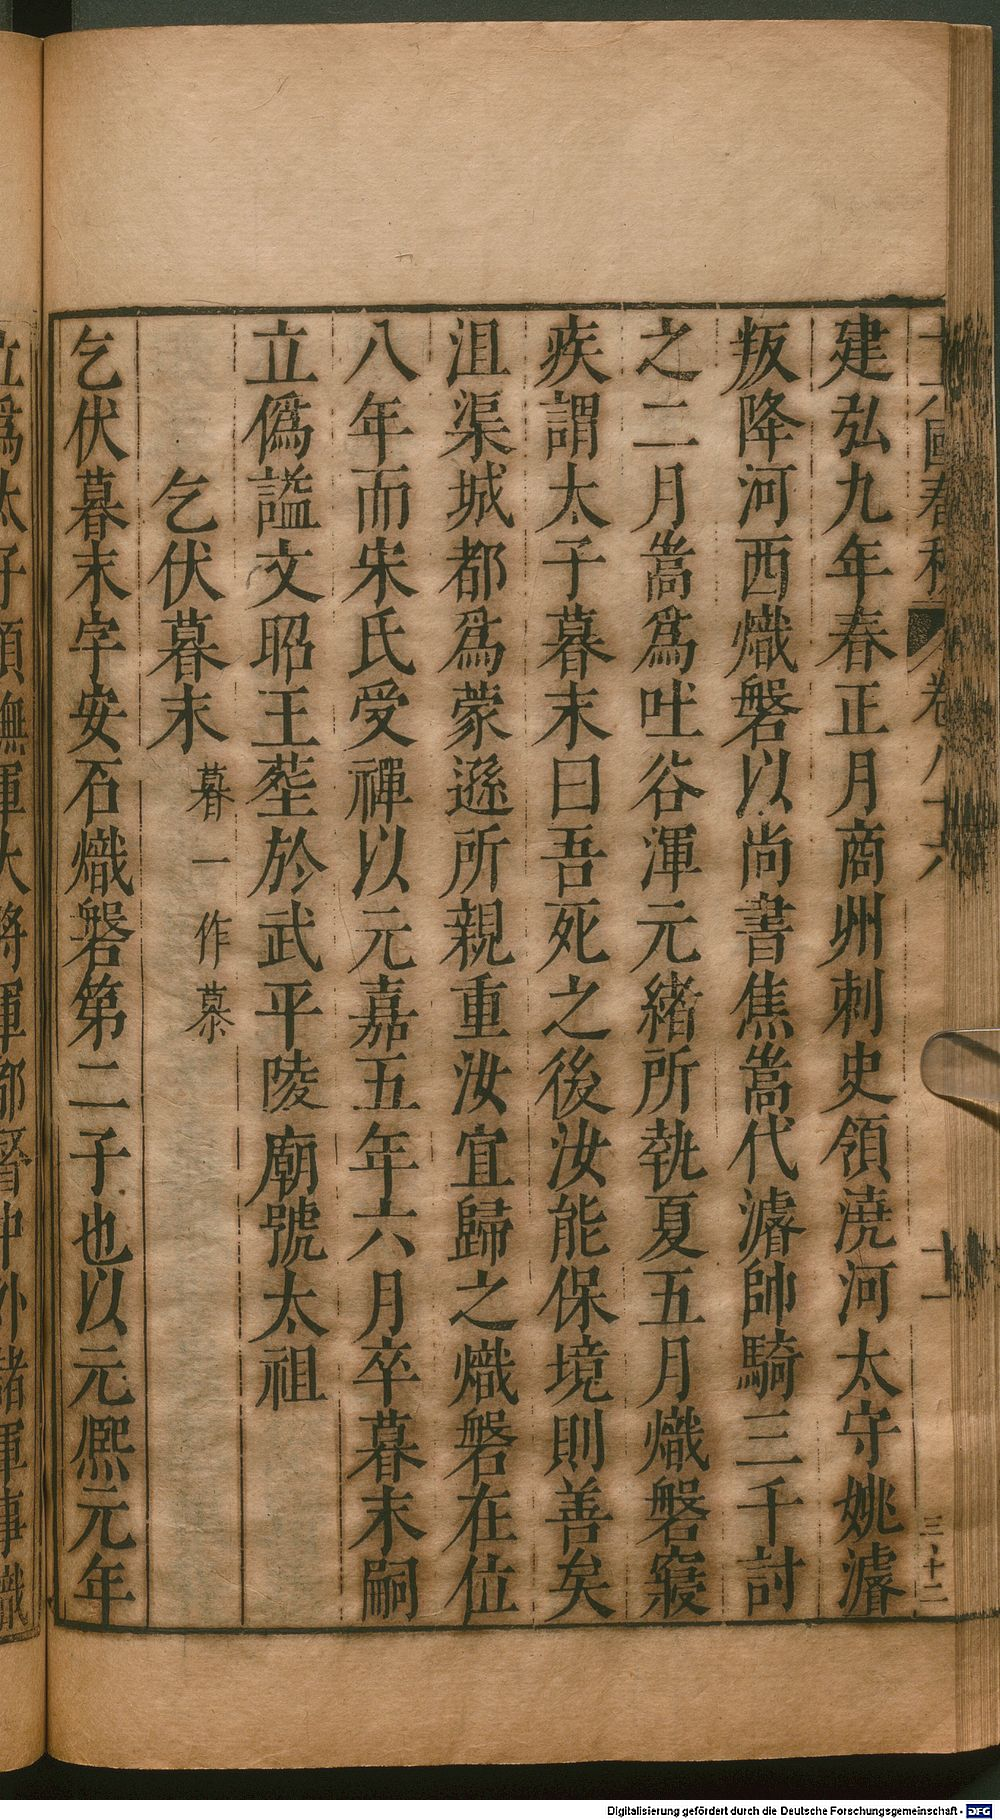 十六國春秋 卷八十六 十一 三十二
建弘九年春正月商州刺史領澆河太守姚濬
叛降河西熾磐以尚書焦嵩代濬帥騎三千討
之二月嵩爲吐谷渾元緒所執夏五月熾磐寢
疾謂太子暮末曰吾死之後汝能保境則善矣
沮渠城都爲蒙遜所親重汝宜歸之熾磐在位
八年而宋氏受禪以元嘉五年六月卒暮末嗣
立僞謚文昭王葬於武平陵廟號太祖
乞伏暮末 暮一作慕
乞伏暮末字安石熾磐第二子也以元熙元年
立爲太子領撫軍大將軍都督中外諸軍事熾
Digitalisierung gefördert durch die Deutsche Forschungsgemeinschaft - DFG